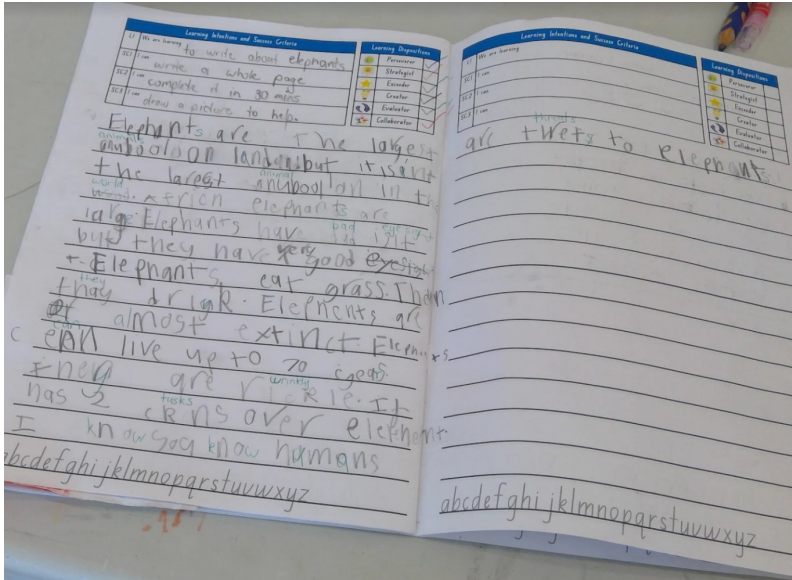 Learning Intentions and Success Criteria
LI We are learning to write about elephants
SC1 I can write a whole page
SC2 I can complete it in 30 mins
SC3 I can draw a picture to help.
Learning Dispositions
Persuerer
Strategist
Encoder
Creator
Evaluator
Collaborator
Elephants are the largest
animals
on land but it isant
animal
the largest on in th
world
African elephants are
large Elephants have bad eyesight
but they have very good
Elephants eat grass. Then
they
thay drink. Elephents are
almost extinct. Elephants
can
can live up to 70 years.
wrinkly
They are rickle. It
tusks
has 2 over elephent
I know you know humans
abcdefghijklmnopqrstuvwxyz
Learning Intentions and Success Criteria
LI We are learning
SC1 I can
SC2 I can
SC3 I can
Learning Dispositions
Strategist
Encoder
Creator
Evaluator
Collaborator
threats
are threts to elephants
abcdefghijklmnopqrstuvwxyz